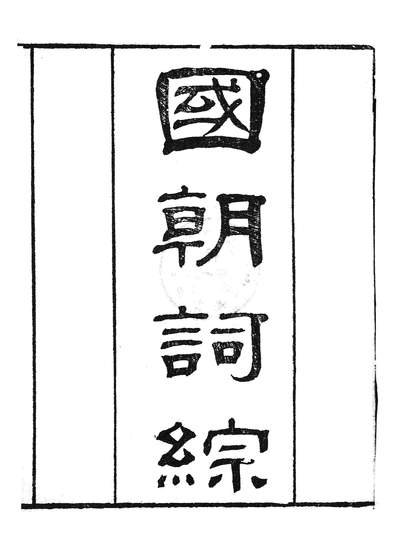 國朝詞綜